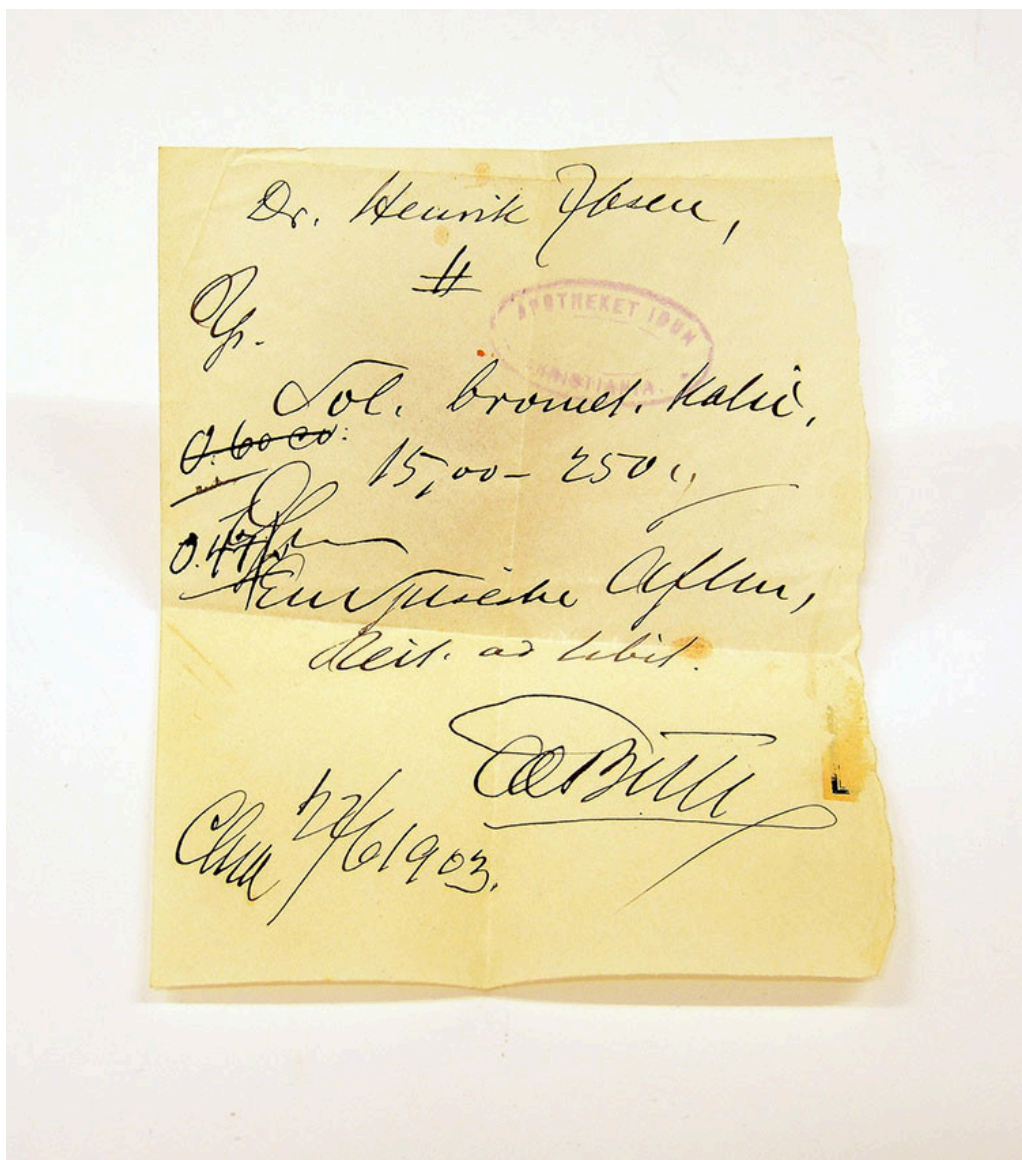 Dr. Henrik Ibsen,
#
APOTHEKET IDUN
CHRISTIANIA.
Rp.
Sol. bromet. Kalic.,
0.60
15,00-250
0.47
En Spiseske Aften,
Reit. ad libit.
EdBull
Chra 12/6 1903.